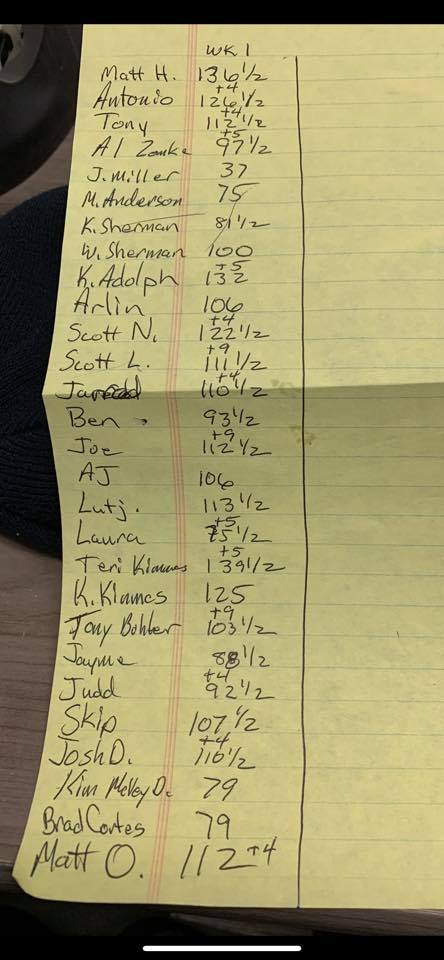 WK 1
Matt H. 136 1/2
+4
Antonio 126 1/2
+4
Tony 112 1/2
+5
Al Zomke 97 1/2
J. Miller 37
M. Anderson 75
K. Sherman 81 1/2
W. Sherman 100
+5
K. Adolph 132
Arlin 106
+4
Scott N. 122 1/2
+9
Scott L. 111 1/2
+4
110 1/2
Ben 93 1/2
+9
Joe 112 1/2
AJ 106
Lutj. 113 1/2
+5
Laura 75 1/2
+5
Teri Kimmes 139 1/2
K. Kimmes 125
+9
Tony Bohler 103 1/2
Jayme 88 1/2
+4
Judd 92 1/2
Skip 107 1/2
+4
Josh D. 116 1/2
Kim McVey D. 79
Brad Cortes 79
Matt O. 112 +4